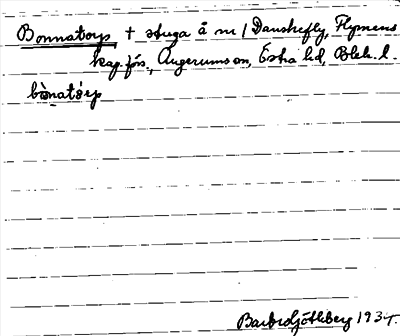 Bonnatorp † stuga å nr 1 Danskefly, Flymens
kap. förs., Augerums sn, Östra hd, Blek. l.
bònatǻrp
Barbro Götlberg 1934.